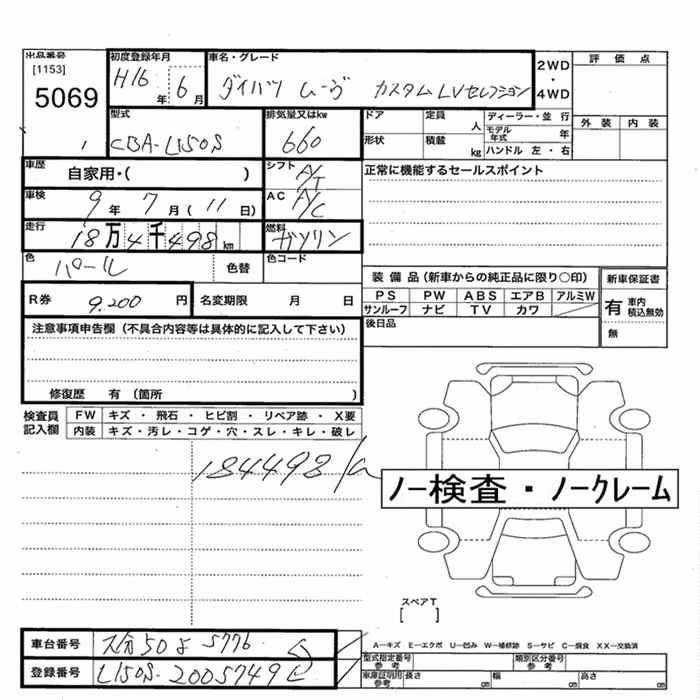 出品番号 初度登録年月 車名・グレード 2WD ・ 4WD 評価点
[1153] 5069 H16年 6月 ダイハツ ムーヴ カスタム LVセレクション
外装 内装
型式 排気量又はkw ドア 定員 人 ディーラー・並行
1 CBA-L150S 660 形状 積載 kg モデル年式 年
ハンドル 左・右
車歴 自家用・( ) シフト A/T 正常に機能するセールスポイント
車検 9年 7月 (11日) AC A/C
走行 18万4千498km 燃料 ガソリン
色 パール 色替 色コード
装備品(新車からの純正品に限り〇印) 新車保証書
R券 9.200円 名変期限 月 日 PS PW ABS エアB アルミW 有 車内積込無効
サンルーフ ナビ TV カワ
注意事項申告欄(不具合内容等は具体的に記入して下さい) 後日品 無
修復歴 有(箇所 )
検査員記入欄 FW キズ・飛石・ヒビ割・リペア跡・X要
内装 キズ・汚レ・コゲ・穴・スレ・キレ・破レ
184498
ノー検査・ノークレーム
スペアT
[ ]
車台番号 50 5776
A−キズ E−エクボ U−凹み W−補修跡 S−サビ C−腐食 XX−交換済
登録番号 L150S-2005749
型式指定番号 参考 類別区分番号 参考
車庫証明用 参考 長さ cm 幅 cm 高さ cm